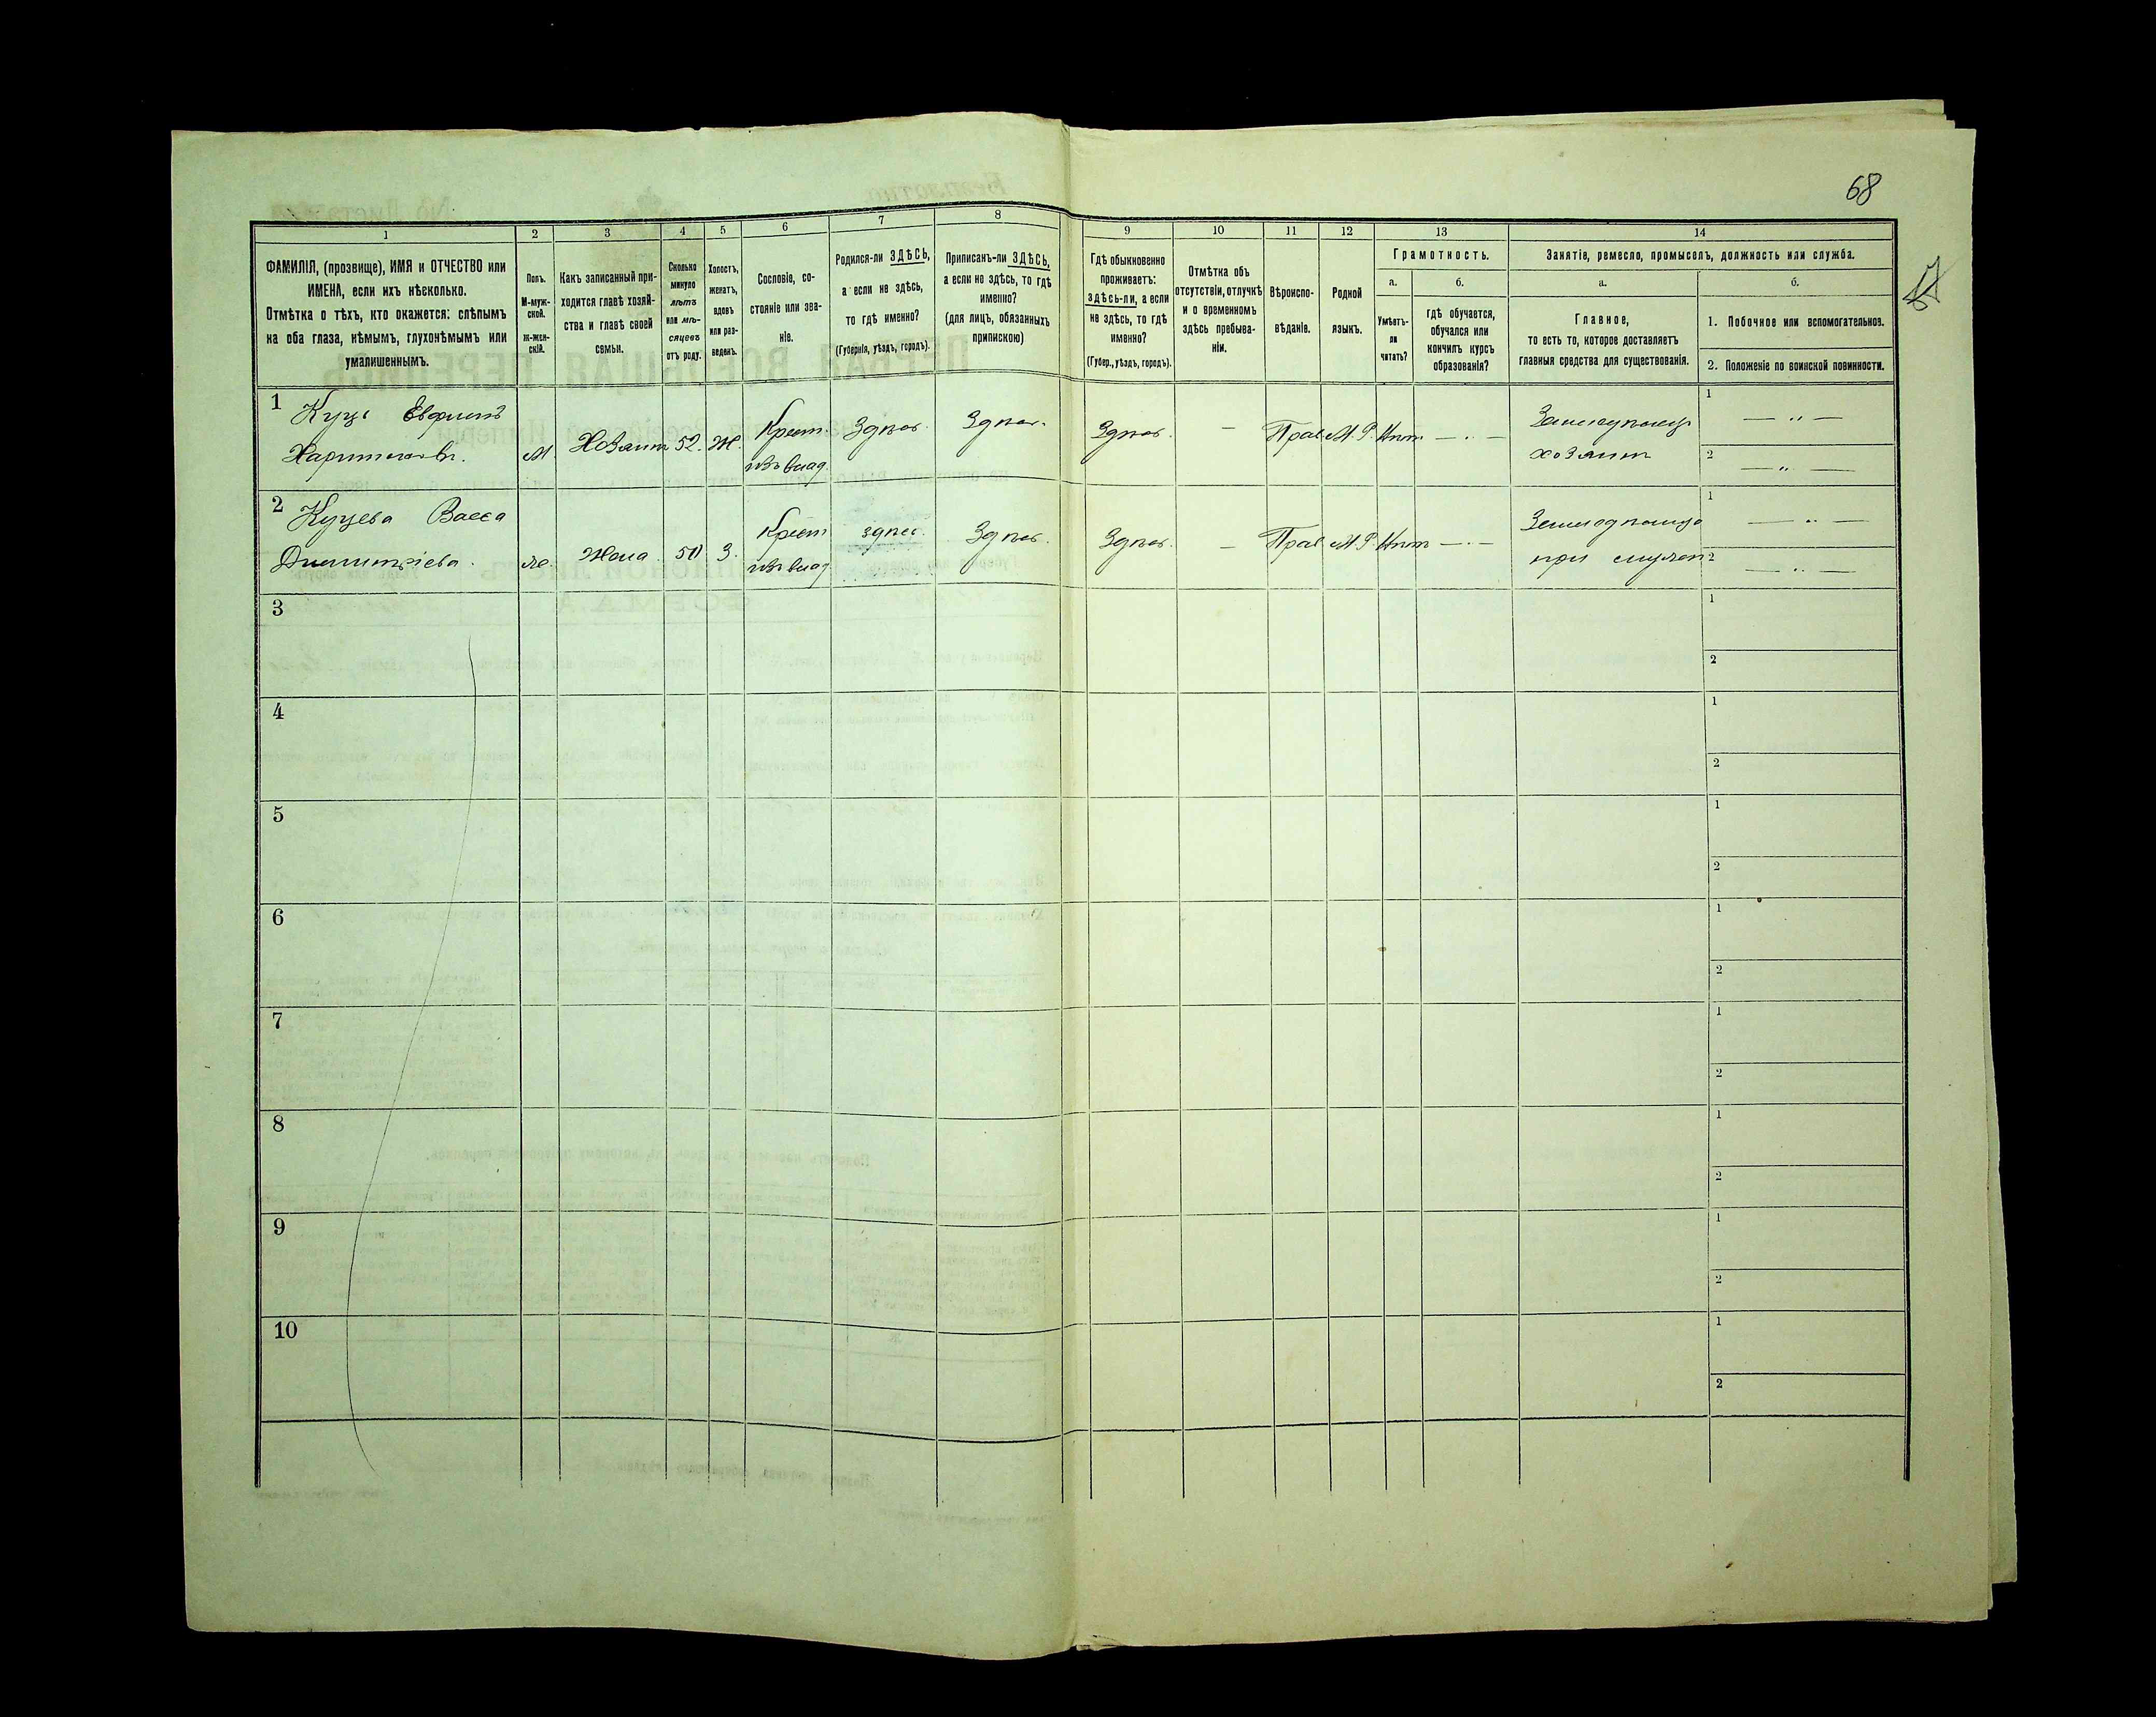 68
1 2 3 4 5 6 7 8 9 10 11 12 13 14
ФАМИЛІЯ, (прозвище), ИМЯ и ОТЧЕСТВО или
ИМЕНА, если ихъ нѣсколько.
Отмѣтка о тѣхъ, кто окажется: слѣпымъ
на оба глаза, нѣмымъ, глухонѣмымъ или
умалишеннымъ.
Полъ.
М-муж-
ской.
ж-жен-
скій.
Какъ записанный при-
ходится главѣ хозяй-
ства и главѣ своей
семьи.
Сколько
минуло
лѣтъ
или мѣ-
сяцевъ
отъ роду.
Холостъ,
женатъ,
вдовъ
или раз-
веденъ.
Сословіе, со-
стояніе или зва-
ніе.
Родился-ли ЗДѢСЬ,
а если не здѣсь,
то гдѣ именно?
(Губернія, уѣздъ, городъ).
Приписанъ-ли ЗДѢСЬ,
а если не здѣсь, то гдѣ
именно?
(для лицъ, обязанныхъ
припискою)
Гдѣ обыкновенно
проживаетъ:
здѣсь-ли, а если
не здѣсь, то гдѣ
именно?
(Губер., уѣздъ, городъ).
Отмѣтка объ
отсутствіи, отлучкѣ
и о временномъ
здѣсь пребыва-
ніи.
Вѣроиспо-
вѣданіе.
Родной
языкъ.
Грамотность.
а.
Умѣетъ-
ли
читать?
б.
гдѣ обучается,
обучался или
кончилъ курсъ
образованія?
Занятіе, ремесло, промыселъ, должность или служба.
а.
Главное,
то есть то, которое доставляетъ
главныя средства для существованія.
б.
1. Побочное или вспомогательное.
2. Положеніе по воинской повинности.
1 Куцъ Евфимъ
м. Хозяинъ 52. Ж. Крест. Здѣсь. Здѣсь. Здѣсь. — Прав. М. Р. Нѣтъ — „ — Земледѣлецъ 1 — „ —
изъ влад. хозяинъ 2 — „ —
2 Куцева Васса
Димитріева. ж. Жена. 50 З. Крест. здѣсь. Здѣсь. Здѣсь. — Прав. М. Р. Нѣтъ — „ — 1 — „ —
изъ влад. при 2 — „ —
3 1
2
4 1
2
5 1
2
6 1
2
7 1
2
8 1
2
9 1
2
10 1
2